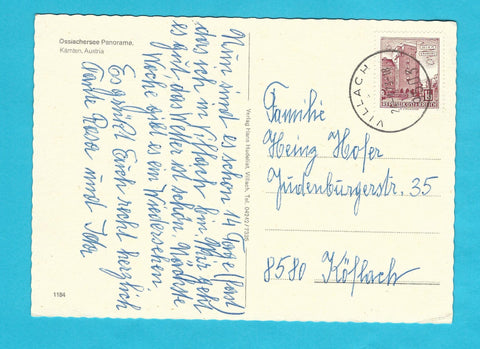 Ossiachersee Panorama,
Kärnten, Austria
Nun sind es schon 14 Tage (fast)
das ich in Villach bin. Mir geht
es gut das Wetter ist schön. Nächste
Woche gibt es ein Wiedersehen
Es grüßt Euch recht herzlich
Tante Rosa und
1184
Verlag Hans Villach, Tel. 04242/77385
VILLACH
REPUBLIK ÖSTERREICH
Familie
Heinz Hofer
Judenburgerstr. 35
8580 Köflach